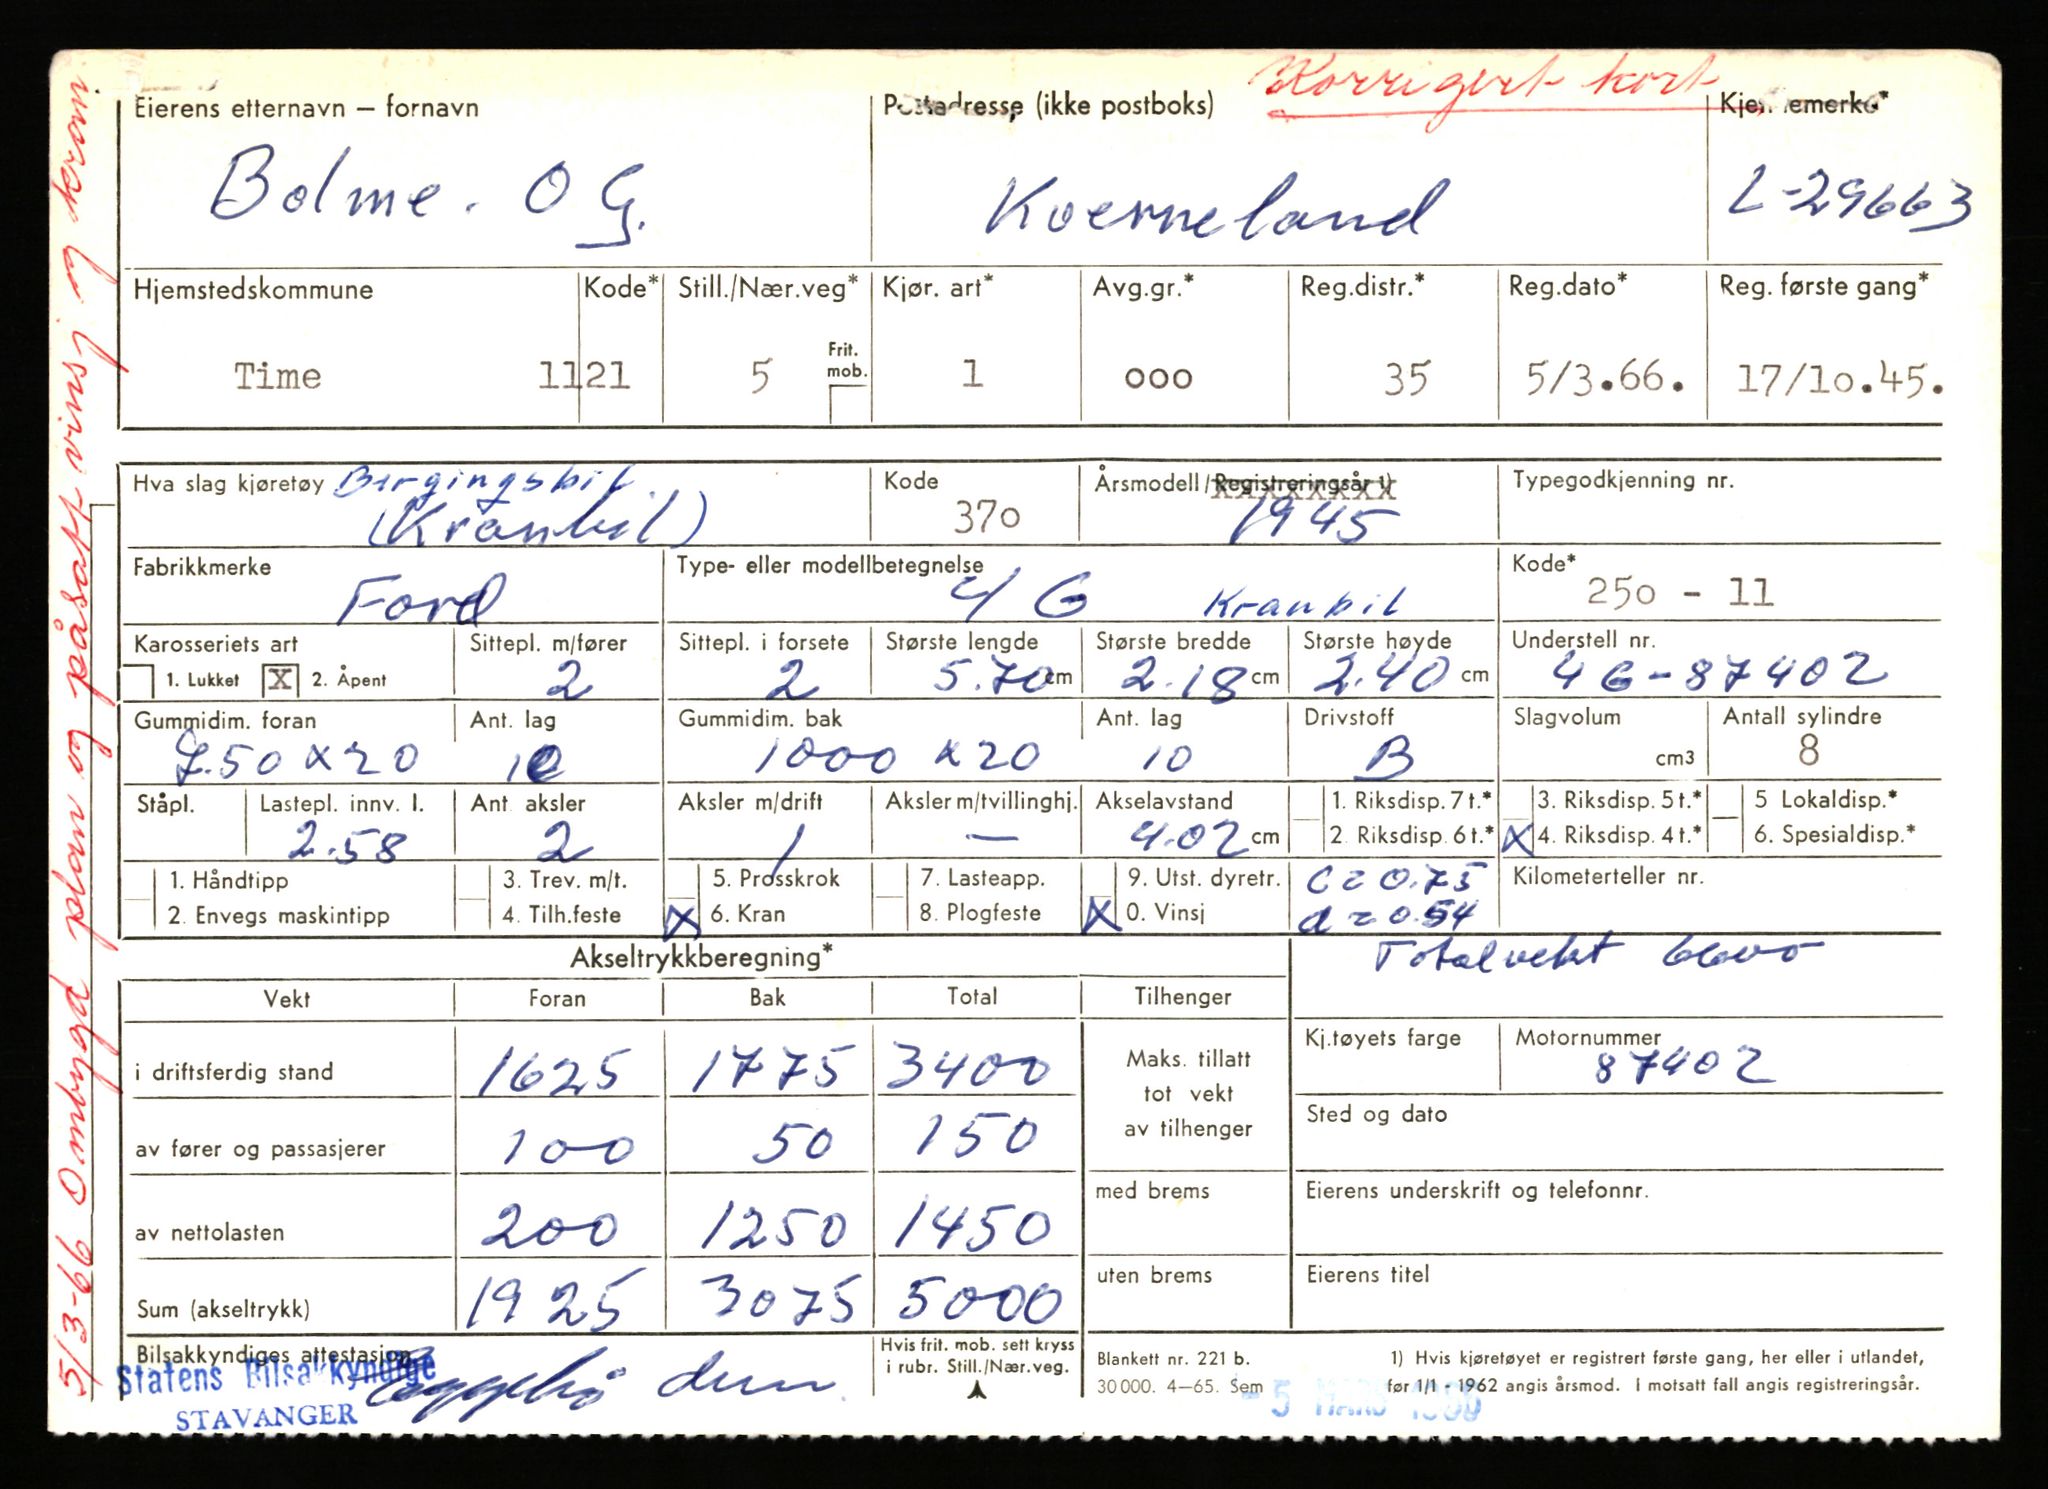 Korrigert kort
Eierens etternavn – fornavn Postadresse (ikke postboks) Kjennemerke*
Bolme. O G. Kverneland L-29663
Hjemstedskommune Kode* Still./Nær.veg* Kjør. art* Avg.gr.* Reg.distr.* Reg.dato* Reg. første gang*
Time 1121 5 Frit. mob. 1 ooo 35 5/3.66. 17/1o.45.
Hva slag kjøretøy Bergingsbil Kode Årsmodell/Registreringsår 1) Typegodkjenning nr.
(Kranbil) 37o 1945
Fabrikkmerke Type- eller modellbetegnelse Kode*
Ford 4 G Kranbil 25o - 11
Karosseriets art Sittepl. m/fører Sittepl. i forsete Største lengde Største bredde Største høyde Understell nr.
1. Lukket X 2. Åpent 2 2 5.70 cm 2.18 cm 2.40 cm 4G-87402
Gummidim. foran Ant. lag Gummidim. bak Ant. lag Drivstoff Slagvolum Antall sylindre
7.50 x 20 10 1000 x 20 10 B cm3 8
Ståpl. Lastepl. innv. l. Ant aksler Aksler m/drift Aksler m/tvillinghj. Akselavstand 1. Riksdisp. 7 t.* 3. Riksdisp. 5 t.* 5 Lokaldisp.*
2.58 2 1 — 4.02 cm 2. Riksdisp. 6 t.* X 4. Riksdisp. 4 t.* 6. Spesialdisp.*
1. Håndtipp 3. Trev. m/t. 5. Prosskrok 7. Lasteapp. 9. Utst. dyretr. c = 0.75 Kilometerteller nr.
2. Envegs maskintipp 4. Tilh.feste X 6. Kran 8. Plogfeste X 0. Vinsj d = 0.54
Akseltrykkberegning* Totalvekt 6600
Vekt Foran Bak Total Tilhenger
i driftsferdig stand 1625 1775 3400 Maks. tillatt tot vekt av tilhenger Kj.tøyets farge Motornummer
87402
av fører og passasjerer 100 50 150 Sted og dato
av nettolasten 200 1250 1450 med brems Eierens underskrift og telefonnr.
Sum (akseltrykk) 1925 3075 5000 uten brems Eierens titel
Bilsakkyndiges attestasjon Hvis frit. mob. sett kryss i rubr. Still./Nær.veg.
Statens Bilsakkyndige
STAVANGER
Blankett nr. 221 b.
30 000. 4–65. Sem
1) Hvis kjøretøyet er registrert første gang, her eller i utlandet,
før 1/1 - 1962 angis årsmod. I motsatt fall angis registreringsår.
- 5 MARS 1966
5/3-66 Ombygd plan og påsatt vinsj og kran.